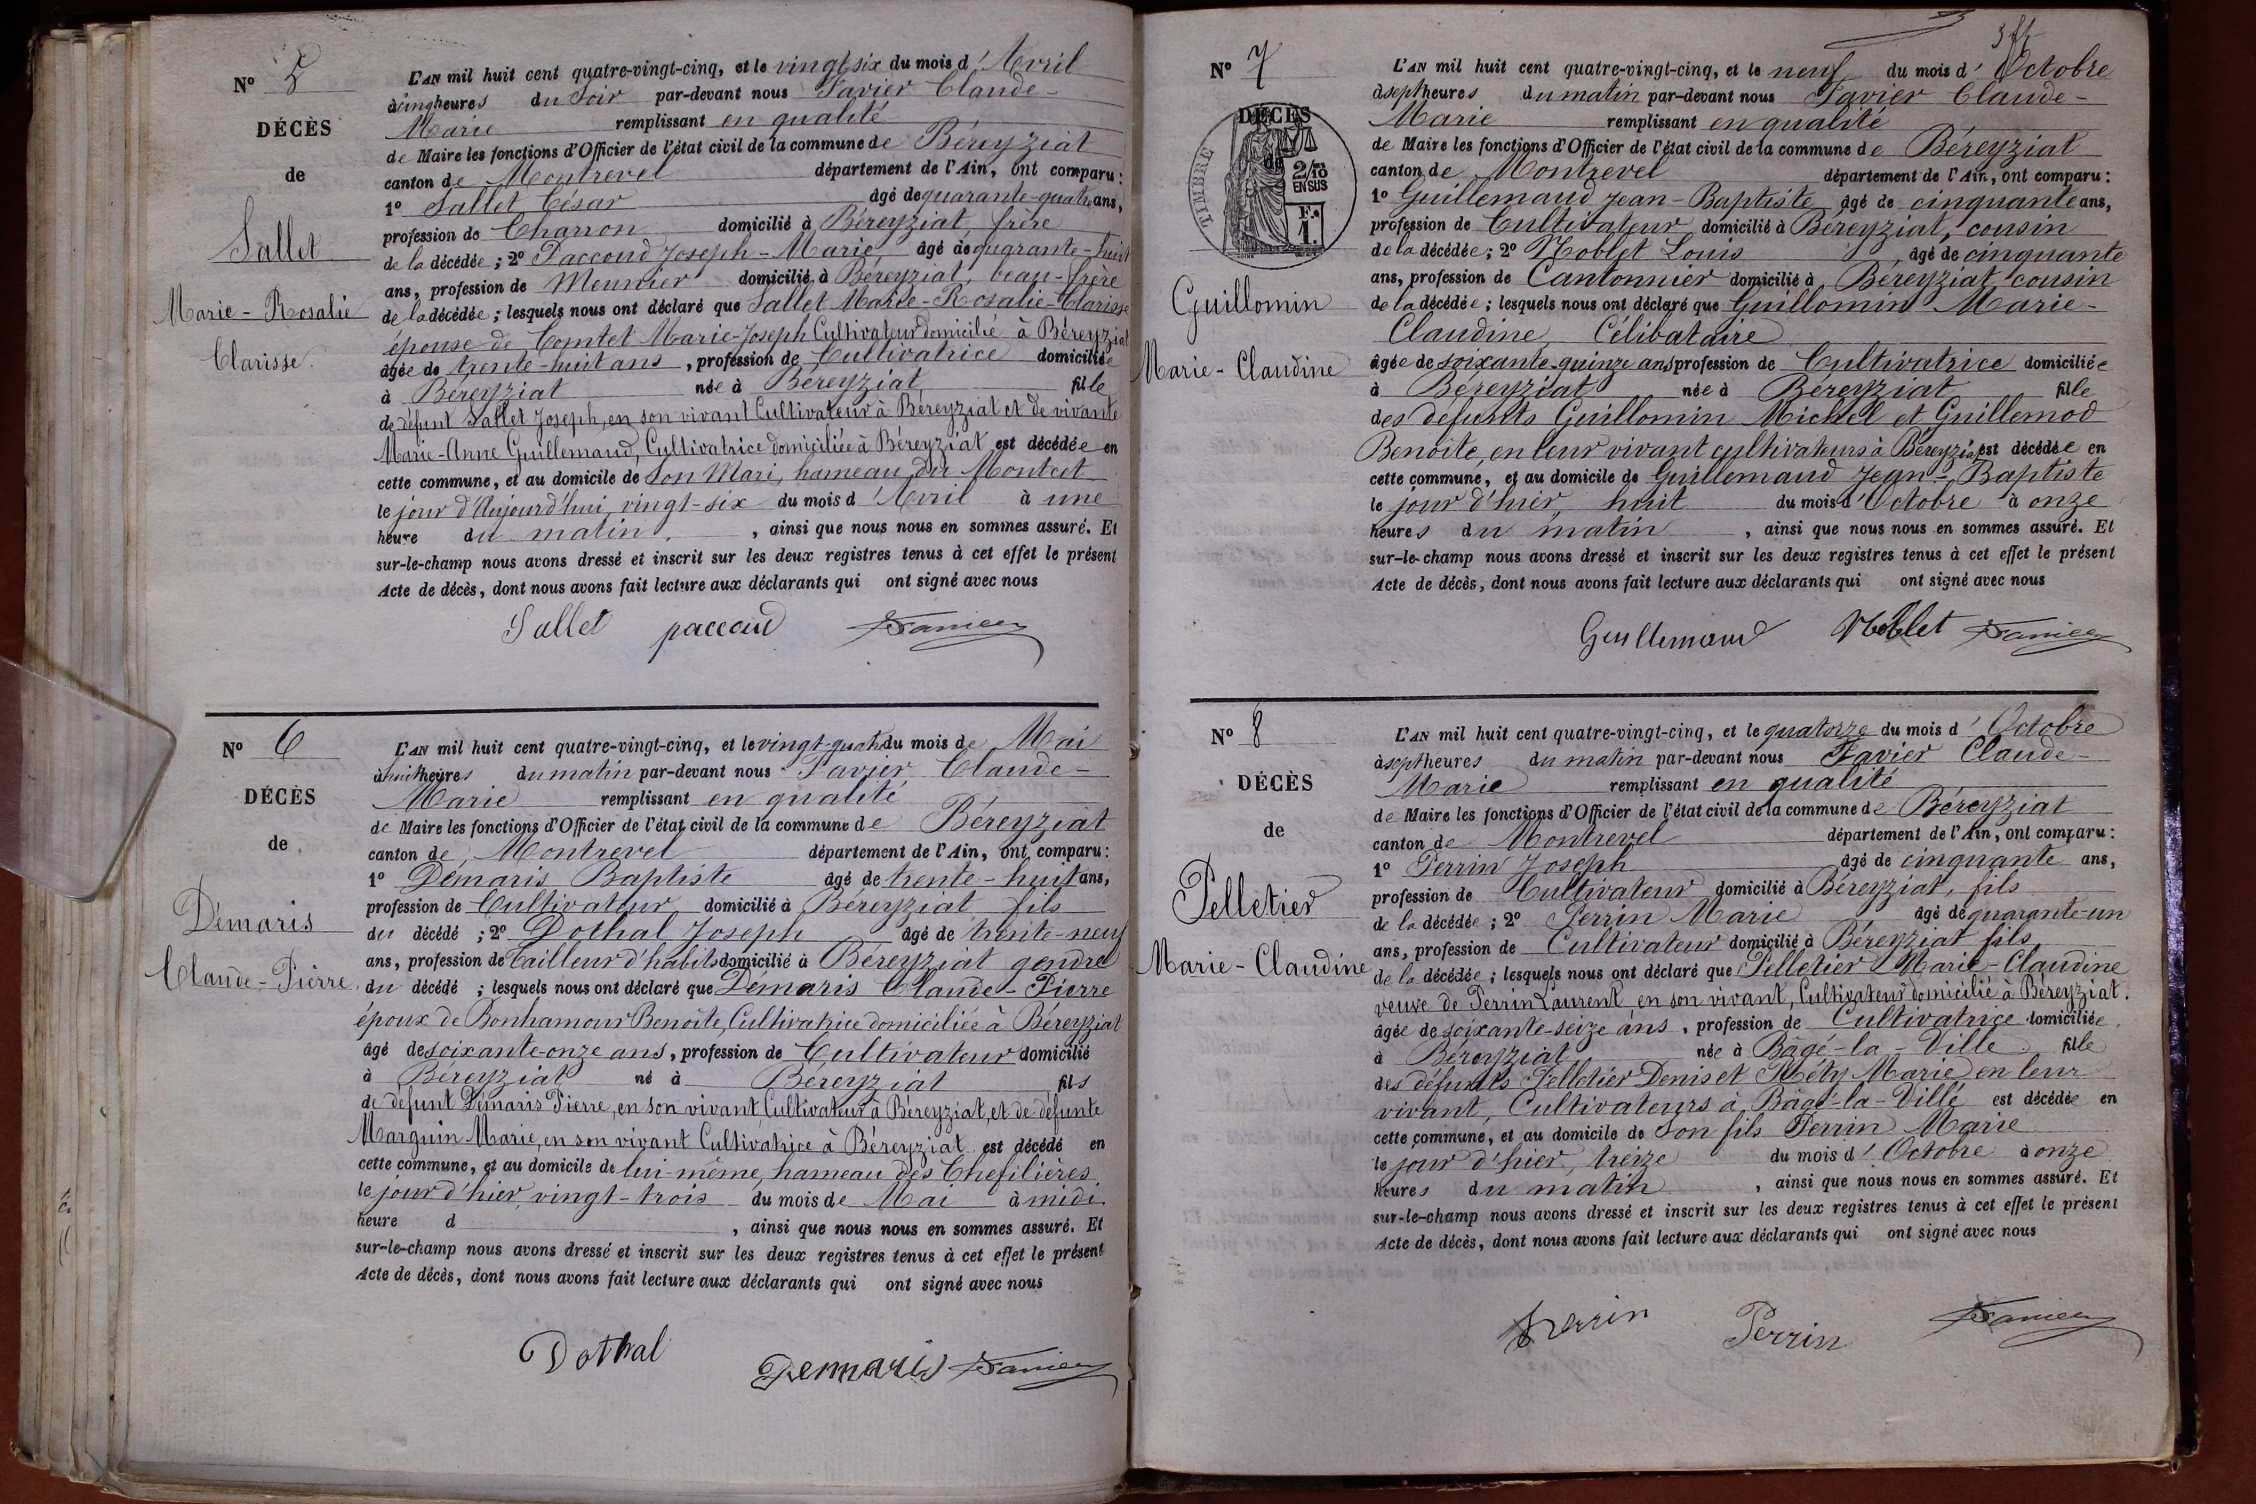 N° 5
DÉCÈS
de
Sallet
Marie-Rosalie
Clarisse.
L'AN mil huit cent quatre-vingt-cinq, et le vingt-six du mois d'Avril
à cinq heures du Soir par-devant nous Favier Claude-
Marie remplissant en qualité
de Maire les fonctions d'Officier de l'état civil de la commune de Béreyziat
canton de Montrevel département de l'Ain, ont comparu :
1° Sallet César âgé de quarante-quatre ans,
profession de Charron domicilié à Béreyziat, frère
de la décédée ; 2° Paccoud Joseph-Marie âgé de quarante-huit
ans, profession de Meunier domicilié à Béreyziat, beau-frère
de la décédée ; lesquels nous ont déclaré que Sallet Marie-Rosalie-Clarisse
épouse de Comtet Marie-Joseph Cultivateur domicilié à Béreyziat
âgée de trente-huit ans, profession de Cultivatrice domiciliée
à Béreyziat née à Béreyziat fille
de défunt Sallet Joseph, en son vivant Cultivateur à Béreyziat et de vivante
Marie-Anne Guillemaud, Cultivatrice domiciliée à Béreyziat est décédée en
cette commune, et au domicile de Son Mari, hameau du Montcet
le jour d'Aujourd'hui, vingt-six du mois d'Avril à une
heure du matin. , ainsi que nous nous en sommes assuré. Et
sur-le-champ nous avons dressé et inscrit sur les deux registres tenus à cet effet le présent
Acte de décès, dont nous avons fait lecture aux déclarants qui ont signé avec nous
Sallet paccoud Favier
N° 6
DÉCÈS
de
Démaris
Claude-Pierre
L'AN mil huit cent quatre-vingt-cinq, et le vingt-quatre du mois de Mai
à huit heures du matin par-devant nous Favier Claude-
Marie remplissant en qualité
de Maire les fonctions d'Officier de l'état civil de la commune de Béreyziat
canton de Montrevel département de l'Ain, ont comparu :
1° Démaris Baptiste âgé de trente-huit ans,
profession de Cultivateur domicilié à Béreyziat fils
du décédé ; 2° Dothal Joseph âgé de trente-neuf
ans, profession de tailleur d'habits domicilié à Béreyziat gendre
du décédé ; lesquels nous ont déclaré que Démaris Claude-Pierre
époux de Bonhamour Benoîte, Cultivatrice domiciliée à Béreyziat
âgé de soixante-onze ans, profession de Cultivateur domicilié
à Béreyziat né à Béreyziat fils
de défunt Démaris Pierre, en son vivant Cultivateur à Béreyziat, et de défunte
Marguin Marie, en son vivant Cultivatrice à Béreyziat est décédé en
cette commune, et au domicile de lui-même, hameau des Chefilières
le jour d'hier, vingt-trois du mois de Mai à midi.
heure d , ainsi que nous nous en sommes assuré. Et
sur-le-champ nous avons dressé et inscrit sur les deux registres tenus à cet effet le présent
Acte de décès, dont nous avons fait lecture aux déclarants qui ont signé avec nous
Dothal Demaris Favier
N° 7
DÉCÈS
de
TIMBRE
2/10
EN SUS
F.
1.
Guillomin
Marie-Claudine
L'AN mil huit cent quatre-vingt-cinq, et le neuf du mois d'Octobre
à sept heures du matin par-devant nous Favier Claude-
Marie remplissant en qualité
de Maire les fonctions d'Officier de l'état civil de la commune de Béreyziat
canton de Montrevel département de l'Ain, ont comparu :
1° Guillemaud Jean-Baptiste âgé de cinquante ans,
profession de Cultivateur domicilié à Béreyziat, cousin
de la décédée ; 2° Noblet Louis âgé de cinquante
ans, profession de Cantonnier domicilié à Béreyziat cousin
de la décédée ; lesquels nous ont déclaré que Guillomin Marie-
Claudine, Célibataire
âgée de soixante-quinze ans profession de Cultivatrice domiciliée
à Béreyziat née à Béreyziat fille
des défunts Guillomin Michel et Guillemod
Benoîte, en leur vivant cultivateurs à Béreyziat est décédée en
cette commune, et au domicile de Guillemaud Jean-Baptiste
le jour d'hier, huit du mois d'Octobre à onze
heures du matin , ainsi que nous nous en sommes assuré. Et
sur-le-champ nous avons dressé et inscrit sur les deux registres tenus à cet effet le présent
Acte de décès, dont nous avons fait lecture aux déclarants qui ont signé avec nous
Guillemaud Noblet Favier
N° 8
DÉCÈS
de
Pelletier
Marie-Claudine
L'AN mil huit cent quatre-vingt-cinq, et le quatorze du mois d'Octobre
à sept heures du matin par-devant nous Favier Claude-
Marie remplissant en qualité
de Maire les fonctions d'Officier de l'état civil de la commune de Béreyziat
canton de Montrevel département de l'Ain, ont comparu :
1° Perrin Joseph âgé de cinquante ans,
profession de Cultivateur domicilié à Béreyziat, fils
de la décédée ; 2° Perrin Marie âgé de quarante-un
ans, profession de Cultivateur domicilié à Béreyziat fils
de la décédée ; lesquels nous ont déclaré que Pelletier Marie-Claudine
veuve de Perrin Laurent, en son vivant, Cultivateur domicilié à Béreyziat.
âgée de soixante-seize ans, profession de Cultivatrice domiciliée
à Béreyziat née à Bâgé-la-Ville fille
des défunts Pelletier Denis et Réty Marie en leur
vivant, Cultivateurs à Bâgé-la-Ville est décédée en
cette commune, et au domicile de Son fils Perrin Marie
le jour d'hier, treize du mois d'Octobre à onze
heures du matin , ainsi que nous nous en sommes assuré. Et
sur-le-champ nous avons dressé et inscrit sur les deux registres tenus à cet effet le présent
Acte de décès, dont nous avons fait lecture aux déclarants qui ont signé avec nous
Perrin Perrin Favier